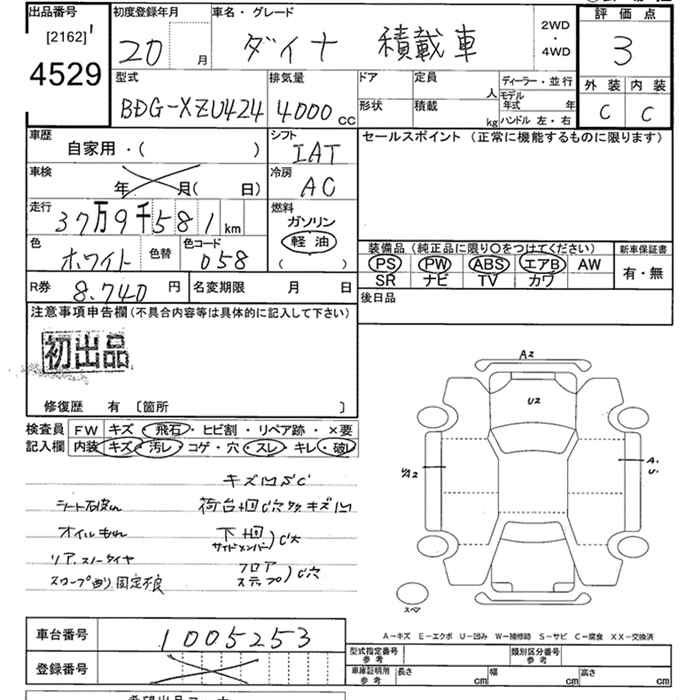 出品番号
[2162]
4529
初度登録年月
20 月
車名・グレード
ダイナ 積載車
2WD
・
4WD
評価点
3
外装 内装
C C
型式
BDG-XZU424
排気量
4000 CC
ドア
形状
定員
人
積載
kg
ディーラー・並行
モデル
年式 年
ハンドル 左・右
車歴
自家用・( )
車検
年 月( 日)
走行
37万9千581km
色
ホワイト
色替
色コード
058
シフト
IAT
冷房
AC
燃料
ガソリン
軽油
( )
セールスポイント (正常に機能するものに限ります)
装備品(純正品に限り○をつけてください)
PS PW ABS エアB AW
SR ナビ TV カワ
新車保証書
有・無
後日品
R券 8,740円
名変期限 月 日
注意事項申告欄(不具合内容等は具体的に記入して下さい)
初出品
修復歴 有 〔箇所 〕
検査員
記入欄
FW キズ・飛石・ヒビ割・リペア跡・×要
内装 キズ・汚レ・コゲ・穴・スレ・キレ・破レ
キズ凹SC
シート破れ
荷台回C穴タタキズ凹
オイルもれ
下回
サイドメンバー)C穴
リア、スノータイヤ
フロア
ステップ)C穴
スロープ 固定不良
A2
U2
A2
A.
U.
スペア
A-キズ E-エクボ U-凹み W-補修跡 S-サビ C-腐食 XX-交換済
車台番号 1005253
登録番号
型式指定番号
参考
類別区分番号
参考
車庫証明用
参考
長さ cm
幅 cm
高さ cm